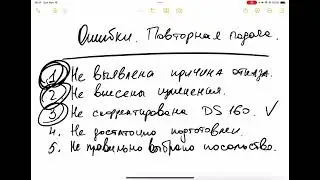 Ошибки. Повторная подача.
1 Не выявлена причина отказа.
2 Не внесены изменения.
3 Не скорректирована DS 160. V
4. Не достаточно подготовлен.
5. Не правильно выбрано посольство.